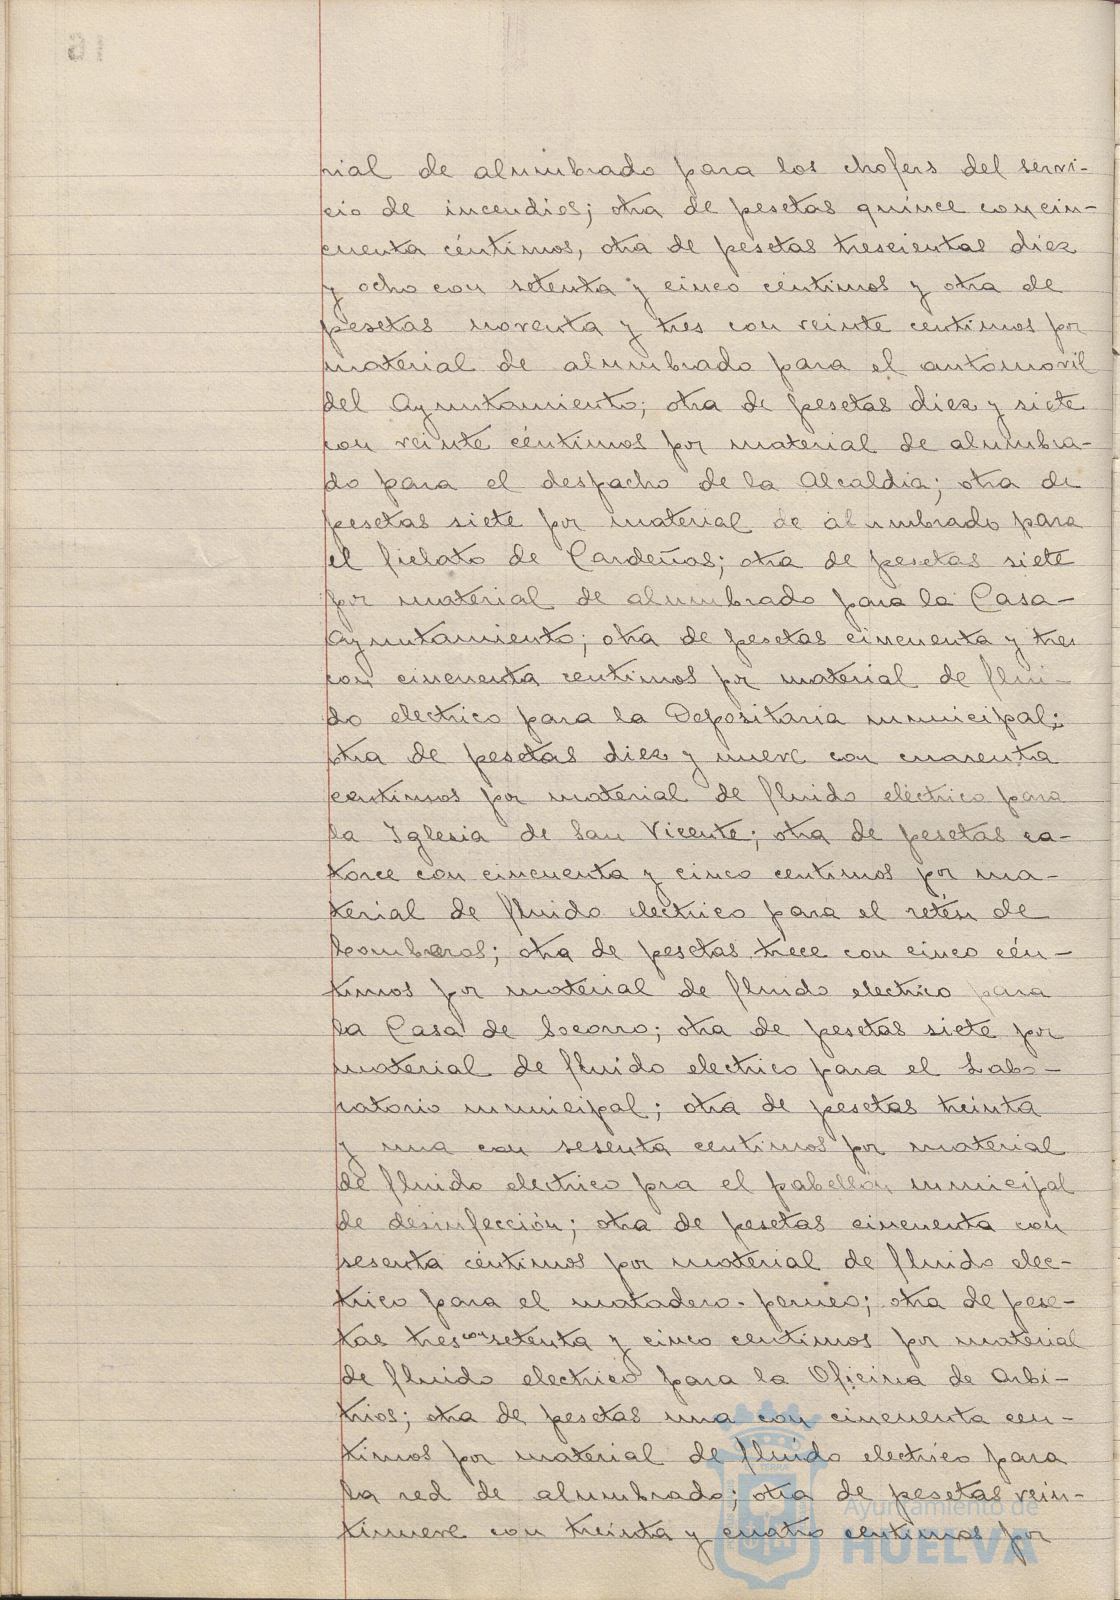 rial de alumbrado para los chofers del servi-
cio de incendios; otra de pesetas quince con cin-
cuenta céntimos, otra de pesetas trescientas diez
y ocho con setenta y cinco céntimos y otra de
pesetas noventa y tres con veinte centimos por
material de alumbrado para el automovil
del Ayuntamiento; otra de pesetas diez y siete
con veinte céntimos por material de alumbra-
do para el despacho de la Alcaldia; otra de
pesetas siete por material de alumbrado para
el fielato de Cardeñas; otra de pesetas siete
por material de alumbrado para la Casa-
Ayuntamiento; otra de pesetas cincuenta y tres
con cincuenta centimos por material de flui-
do electrico para la Depositaria municipal;
otra de pesetas diez y nueve con cuarenta
centimos por material de fluido eléctrico para
la Iglesia de San Vicente; otra de pesetas ca-
torce con cincuenta y cinco centimos por ma-
terial de fluido electrico para el retén de
bomberos; otra de pesetas trece con cinco cén-
timos por material de fluido electrico para
la Casa de Socorro; otra de pesetas siete por
material de fluido electrico para el Labo-
ratorio municipal; otra de pesetas treinta
y una con sesenta centimos por material
de fluido electrico pra el pabellón municipal
de desinfección; otra de pesetas cincuenta con
sesenta céntimos por material de fluido elec-
trico para el matadero-perneo; otra de pese-
tas tres con setenta y cinco centimos por material
de fluido electrico para la Oficina de Arbi-
trios; otra de pesetas una con cincuenta cen-
timos por material de fluido electrico para
la red de alumbrado; otra de pesetas vein-
tinueve con treinta y cuatro centimos por
Ayuntamiento de
HUELVA